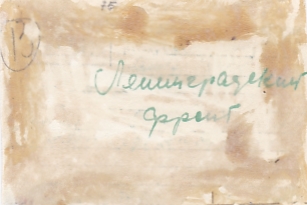 35
Ленинградский
фронт